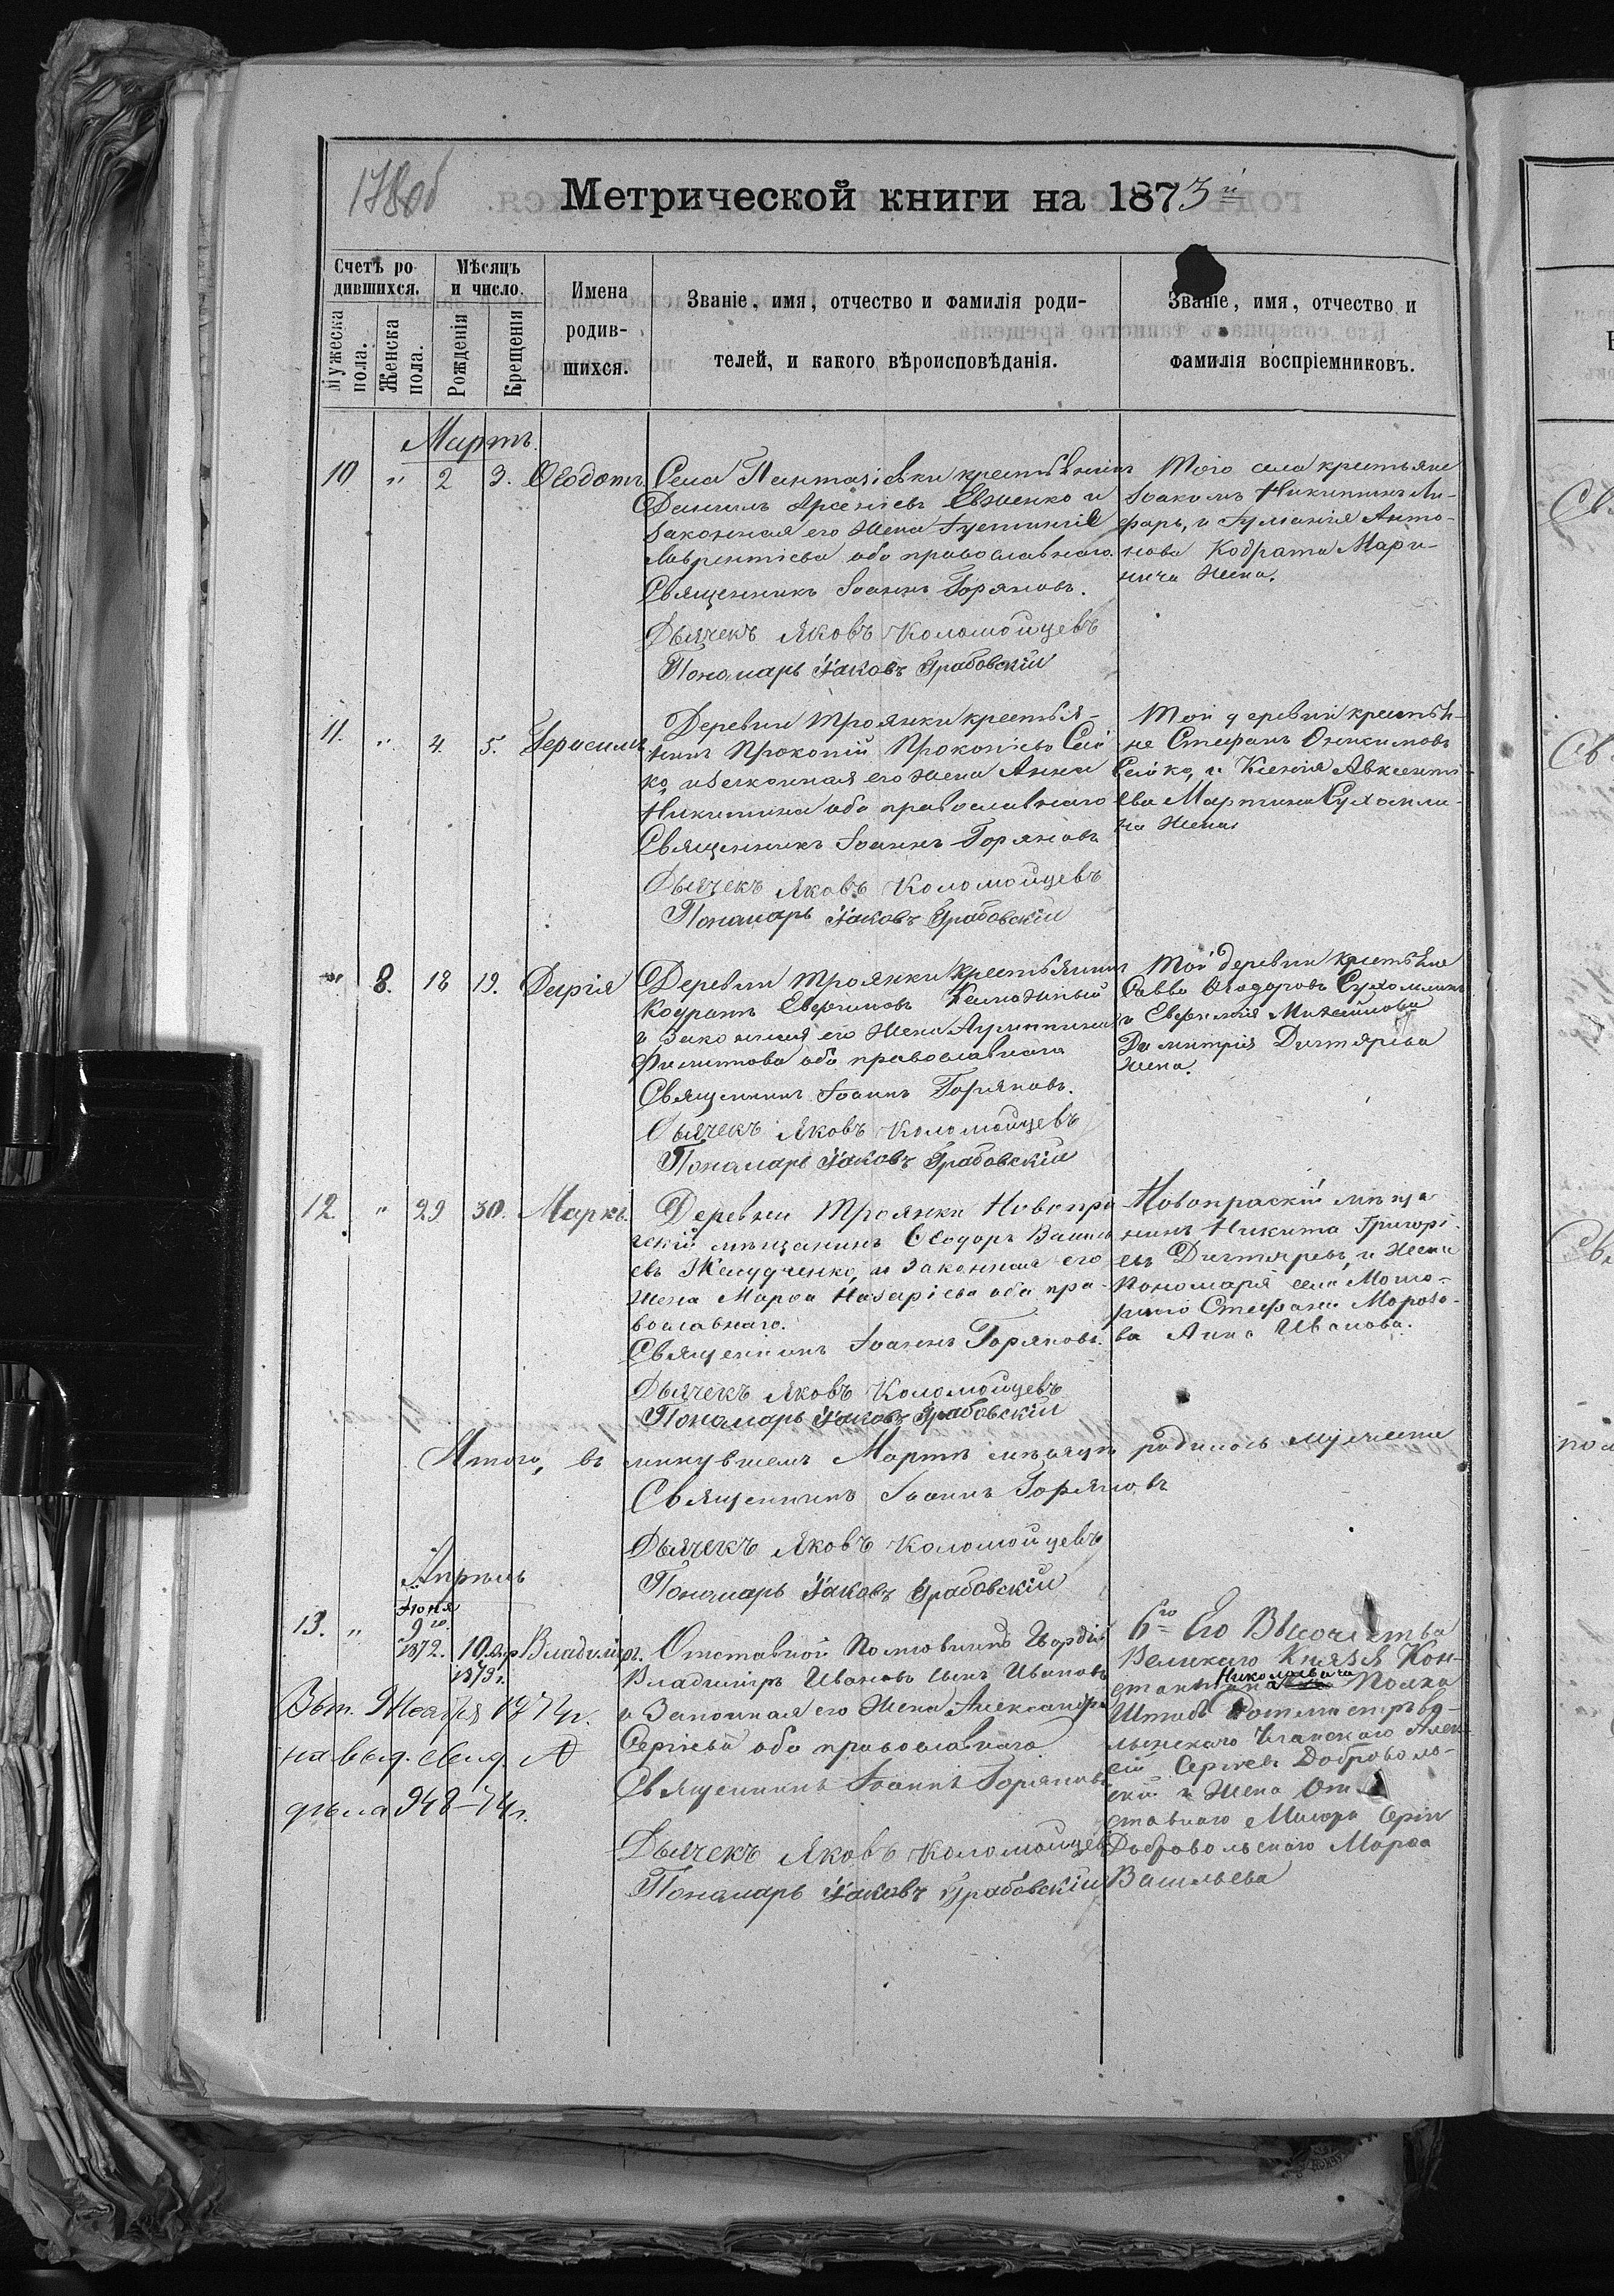 178об
Метрической книги на 1873й
Счетъ ро-
дившихся.
Мужеска
пола.
Женска
пола.
Мѣсяцъ
и число.
Рожденія
Крещенія
Имена
родив-
шихся.
Званіе, имя, отчество и фамилія роди-
телей, и какого вѣроисповѣданія.
Званіе, имя, отчество и
фамилія воспріемниковъ.
Мартъ
10 " 2 3. Ѳеодотъ
Села Пантазіевки крестьянинъ
Данилъ Арсеніевъ Евженко и
законная его жена Іустинія
Лаврентіева оба православнаго.
Священникъ Іоаннъ Горяновъ.
Дьячекъ Яковъ Коломойцевъ
Пономарь Іаковъ Грабовскій
Того села крестьяне
Іоакимъ Никитинъ Ли-
фарь, и Іуліанія Анто-
нова Кодрата Мари-
нича жена.
11. " 4. 5. Герасимъ
Деревни Троянки крестья-
нинъ Прокопій Прокопіевъ Сей
ко, и законная его жена Анна
Никитина оба православнаго
Священникъ Іоаннъ Горяновъ
Дьячекъ Яковъ Коломойцевъ
Пономарь Іаковъ Грабовскій
Той деревни крестья-
не Стефанъ Онисимовъ
Сейко, и Ксенія Авксенті-
ева Мартина Сухомли-
на жена
" 8. 18 19. Дарія
Деревни Троянки крестьянинъ
Кодратъ Евфимовъ
и законная его жена Агриппина
Филиппова оба православнаго
Священникъ Іоаннъ Горяновъ.
Дьячекъ Яковъ Коломойцевъ
Пономарь Іаковъ Грабовскій
Той деревни крестьяне
Савва Ѳеодоровъ Сухомлинъ
и Евфимія Михайлова
Димитрія Дигтярева
жена.
12. " 29 30. Маркъ.
Деревни Троянки Новопра
жскій мѣщанинъ Ѳеодоръ Васильевъ
Желудченко, и законная его
жена Марѳа Назаріева оба пра-
вославнаго.
Священникъ Іоаннъ Горяновъ.
Дьячекъ Яковъ Коломойцевъ
Пономарь Іаковъ Грабовскій
Новопраскій мѣща
нинъ Никита Григорі-
евъ Дигтяревъ, и жена
Пономаря села Мото-
рино Стефана Морозо-
ва Анна Иванова.
Итого, въ минувшемъ Мартѣ мѣсяцѣ родилось мужеска
Священникъ Іоаннъ Горяновъ
Дьячекъ Яковъ Коломойцевъ
Пономарь Іаковъ Грабовскій
Апрѣль
13. " Іюня 9го 1872. 10 апр 1873 г. Владиміръ.
Отставной Полковникъ Гвардіи
Владиміръ Ивановъ сынъ Ивановъ
и Законная его жена Александра
Сергіева оба православнаго
Священникъ Іоаннъ Горяновъ
Дьячекъ Яковъ Коломойцевъ
Пономарь Іаковъ Грабовскій
6го Его Высочества
Великаго Князя Кон-
стантина Николаевича Полка
Штабъ Ротмистръ Во-
лынскаго Уланскаго Алек-
сій Сергіевъ Добровольс-
кій и жена От
ставнаго Маіора Сергія
Добровольскаго Марѳа
Васильева
Вып. 1874 г.
на выд. свид. №
дѣла 948-74 г.